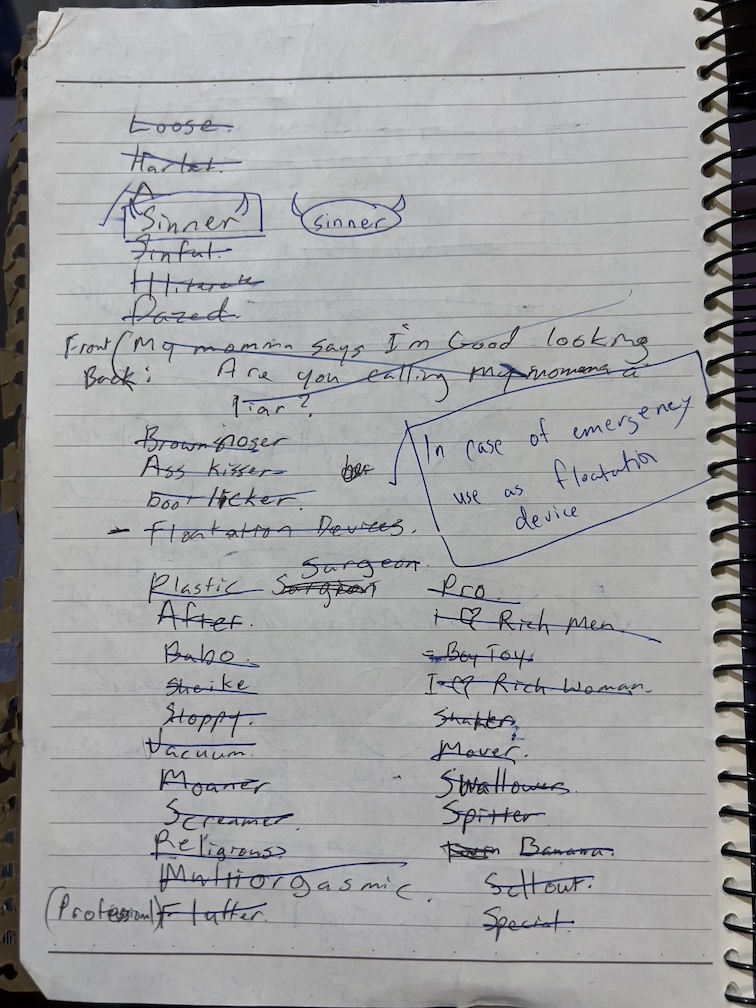 Loose.
Harlet.
Sinner
sinner
Sinful.
Illiterate
Dazed.
Front (My momma says I'm Good looking
Back: Are you calling my momma a
liar?
Brown noser
Ass kisser
boot licker.
- Floatation Devices.
In case of emergency
use as floatation
device
Surgeon.
Plastic
After.
Babo.
Sheike
Sloppy.
Vacuum.
Moaner
Screamer.
Religious
Multiorgasmic.
(Professional) Flutter.
Pro.
I ♡ Rich Men.
= Boy Toy.
I ♡ Rich Woman.
Shaker
Mover.
Swallower.
Spitter
Banana.
Sellout.
Special.